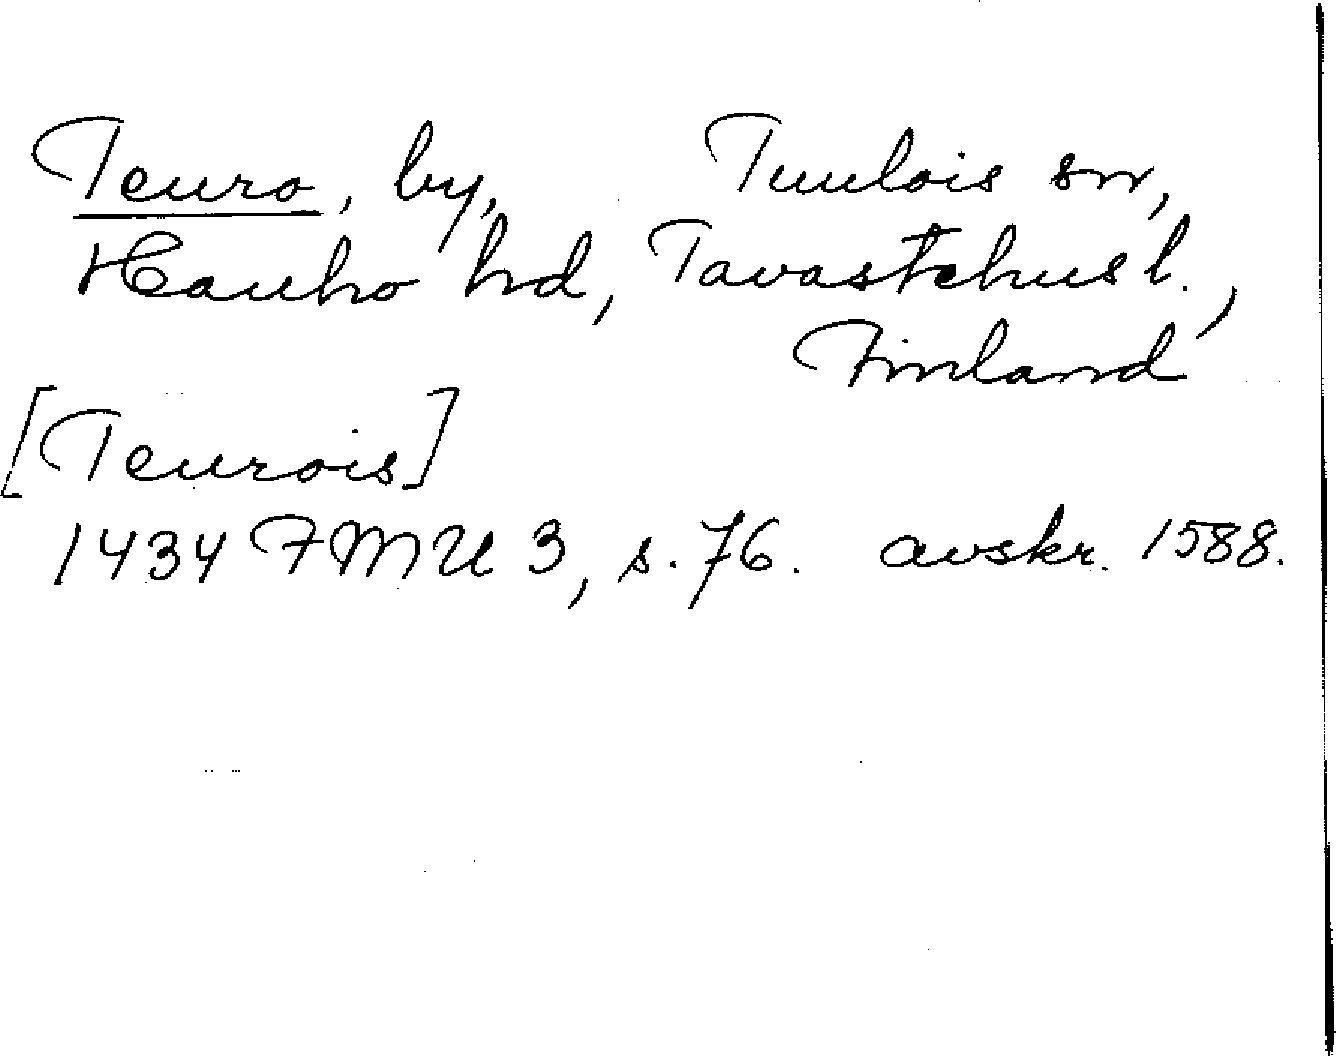 Teuro, by, Tuulois sn,
Hauho hd, Tavastehus l.,
Finland
[Teurois]
1434 FMU 3, s. 76. avskr. 1588.